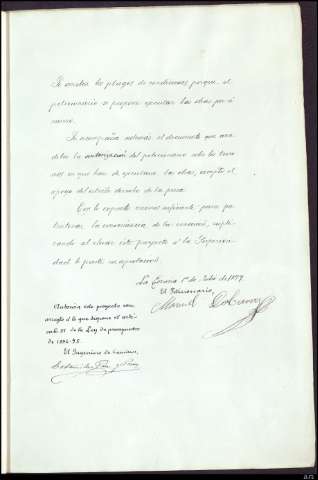 Se omiten los pliegos de condiciones porque el
peticionario se propone ejecutar las obras por si
mismo.
Se acompaña además el documento que acre-
dita la autorización del peticionario sobre los terre-
nos en que han de ejecutarse las obras, excepto el
apoyo del estribo derecho de la presa.
Con lo expuesto creemos suficiente para pa-
tentizar la conveniencia de la concesión, supli-
cando al elevar este proyecto á la Superiori-
dad le preste su aprobación.
La Coruña 1º de Julio de 1899.
El Peticionario,
Manuel
Autorizo este proyecto con
arreglo á lo que dispone el artí-
culo 37 de la Ley de presupuestos
de 1894-95.
El Ingeniero de Caminos,